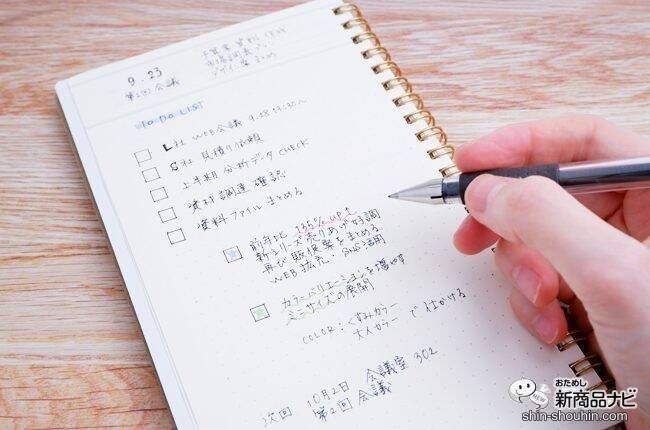 9.23
第1回会議
提案資料作成
市場調査
デザイン案まとめ
TO DO LIST
L社 WEB会議 9.28 13:30〜
S社 見積り依頼
上半期 分析データ CHECK
資材調達 確認
資料ファイルまとめる
前年比 135% UP↑
新シリーズ売りあげ好調
再び販促案をまとめる
WEB拡充・SNS活用
カラーバリエーションを増やす
ミニサイズの展開
COLOR:くすみカラー
大人カラー で仕かける
次回 10月2日 会議室 302
第2回 会議
おためし
新商品ナビ
shin-shouhin.com